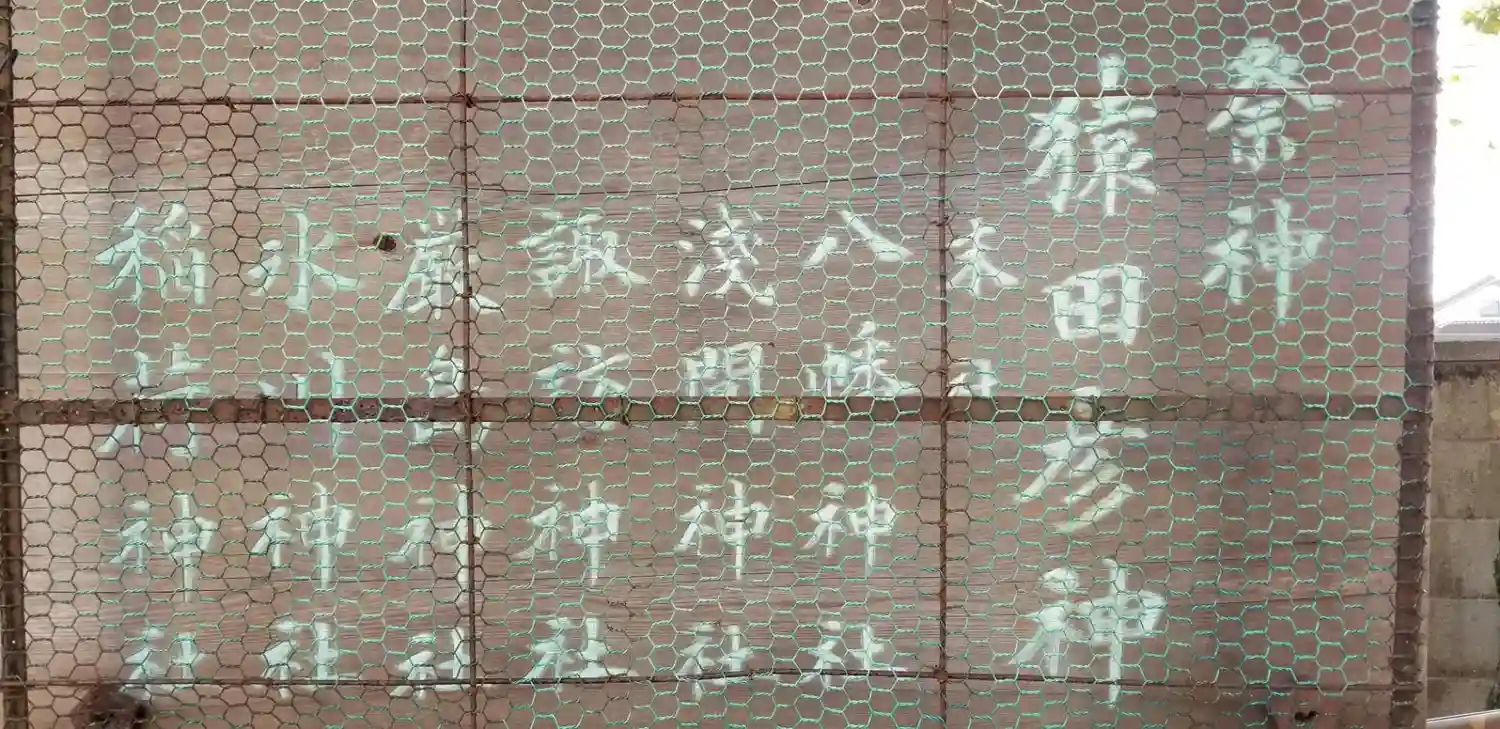 祭神
猿田彦神
末社
八幡神社
淺間神社
諏訪神社
厳島神社
氷川神社
稲荷神社